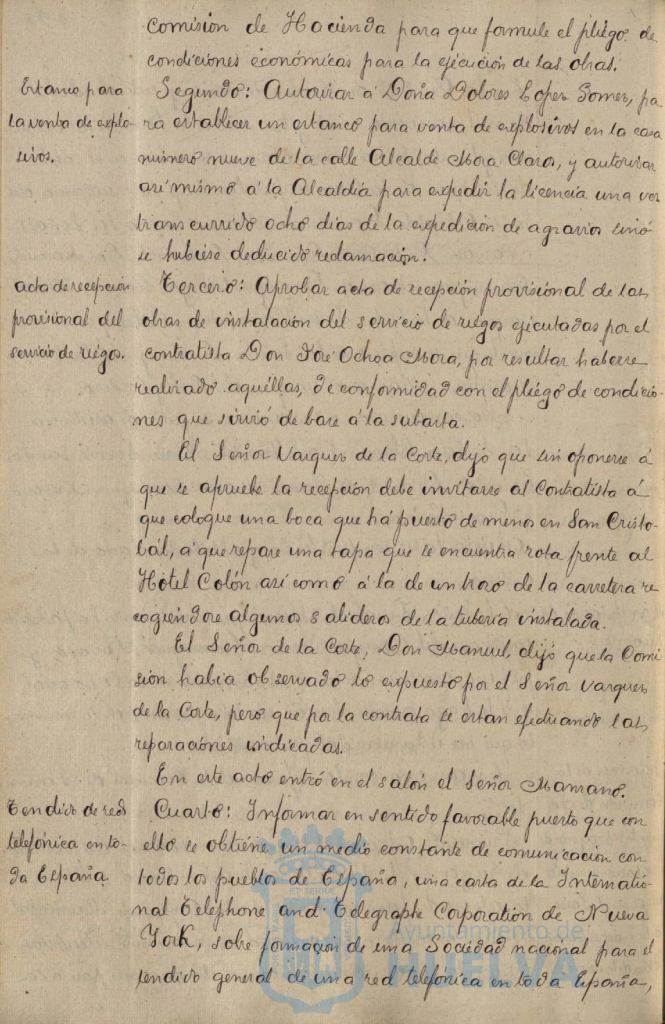 comisión de Hacienda para que formule el pliego de
condiciones económicas para la ejecución de las obras.
Estanco para
la venta de explo-
sivos.
Segundo: Autorizar á Doña Dolores Lopez Gomez, pa
ra establecer un estanco para venta de explosivos en la casa
numero nueve de la calle Alcalde Mora Claros, y autorizar
asi mismo á la Alcaldía para expedir la licencia una vez
transcurrido ocho dias de la expedición de agravios sinó
se hubiese deducido reclamación.
acta de recepción
provisional del
servicio de riegos.
Tercero: Aprobar acta de recepción provisional de las
obras de instalación del servicio de riegos ejecutadas por el
contratista Don José Ochoa Mora, por resultar haberse
realizado aquéllas, de conformidad con el pliego de condicio-
nes que sirvió de base á la subasta.
El Señor Vazquez de la Corte, dijó que sin oponerse á
que se apruebe la recepción debe invitarse al Contratista á
que coloque una boca que há puesto de menos en San Cristo-
bál, a que repare una tapa que se encuentra rota frente al
Hótel Colón asi como á la de un trozo de la carretera re
cogiendose algunos salideros de la tubería instalada.
El Señor de la Corte, Don Manuel, dijó que la Comi
sión habia observado lo expuesto por el Señor Vazquez
de la Corte, pero que por la contrata se estan efectuando las
reparaciones indicadas.
En este acto entró en el salón el Señor Manzano.
Tendido de red
telefónica en to-
da España
Cuarto: Informar en sentido favorable puesto que con
ello se obtiene un medio constante de comunicación con
todos los pueblos de España, una carta de la Internatio-
nal Telephone and Telegraphe Corporation de Nueva
York, sobre formación de una Sociedad nacional para el
tendido general de una red telefónica en toda España,
Ayuntamiento de
HUELVA